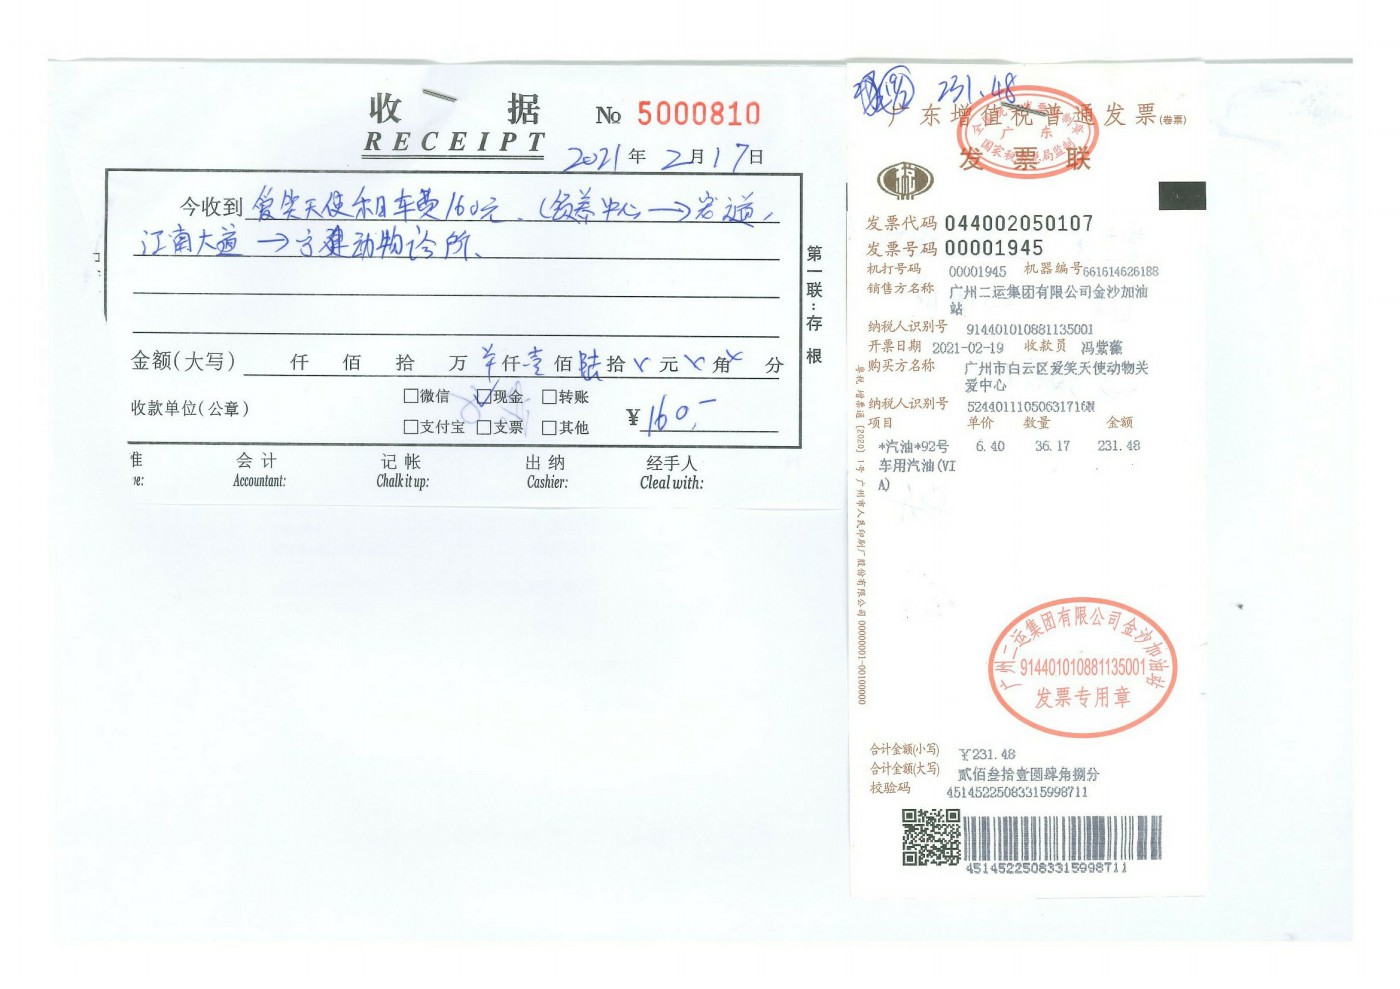 收 据
RECEIPT
№ 5000810
2021年2月17日
今收到 爱笑天使 车费160元、(领养中心→岩道,
江南大道→ 动物诊所、
第一联:存根
金额(大写) 仟 佰 拾 万 仟壹佰陆拾 元 角 分
收款单位(公章)
微信 现金 转账
支付宝 支票 其他
¥160.-
准 会计 记帐 出纳 经手人
ve: Accountant: Chalk it up: Cashier: Cleal with:
231.48
广东增值税普通发票(卷票)
发票联
全国统一发票监制章
广东
国家税务总局监制
发票代码 044002050107
发票号码 00001945
机打号码 00001945 机器编号 661614626188
销售方名称 广州二运集团有限公司金沙加油
站
纳税人识别号 914401010881135001
开票日期 2021-02-19 收款员 冯紫薇
购买方名称 广州市白云区爱笑天使动物关
爱中心
纳税人识别号 52440111050631716N
项目 单价 数量 金额
*汽油*92号 6.40 36.17 231.48
车用汽油(VI
A)
粤税 增票通 (2020) 1号 广州市人民印刷厂股份有限公司 00000001-00100000
广州二运集团有限公司金沙加油站
914401010881135001
发票专用章
合计金额(小写) ¥231.48
合计金额(大写) 贰佰叁拾壹圆肆角捌分
校验码 45145225083315998711
45145225083315998711